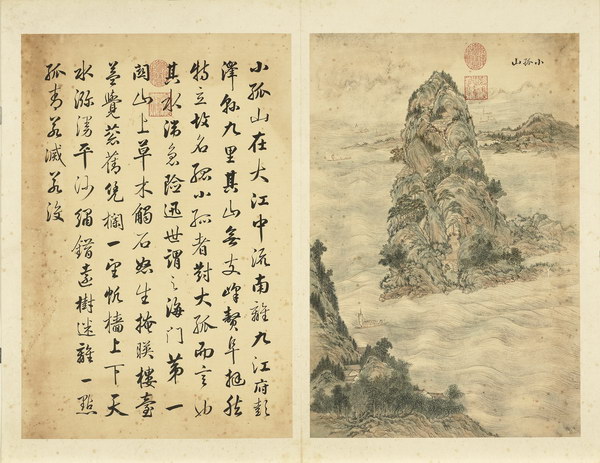 小孤山
小孤山在大江中流南離九江府彭
澤縣九里其山無支峰贅阜挺然
特立故名孤小孤者對大孤而言也
其水湍急險迅世謂之海門第一
關山上草木觸石怒生掩映樓臺
益覺蒼凭欄一望帆檣上下天
水瀰漫平沙繡錯遠樹迷離一點
孤青若滅若沒